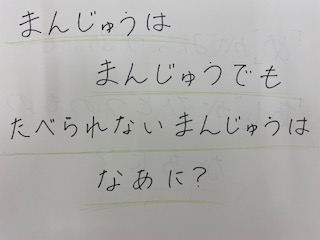 まんじゅうは
まんじゅうでも
たべられないまんじゅうは
なあに?